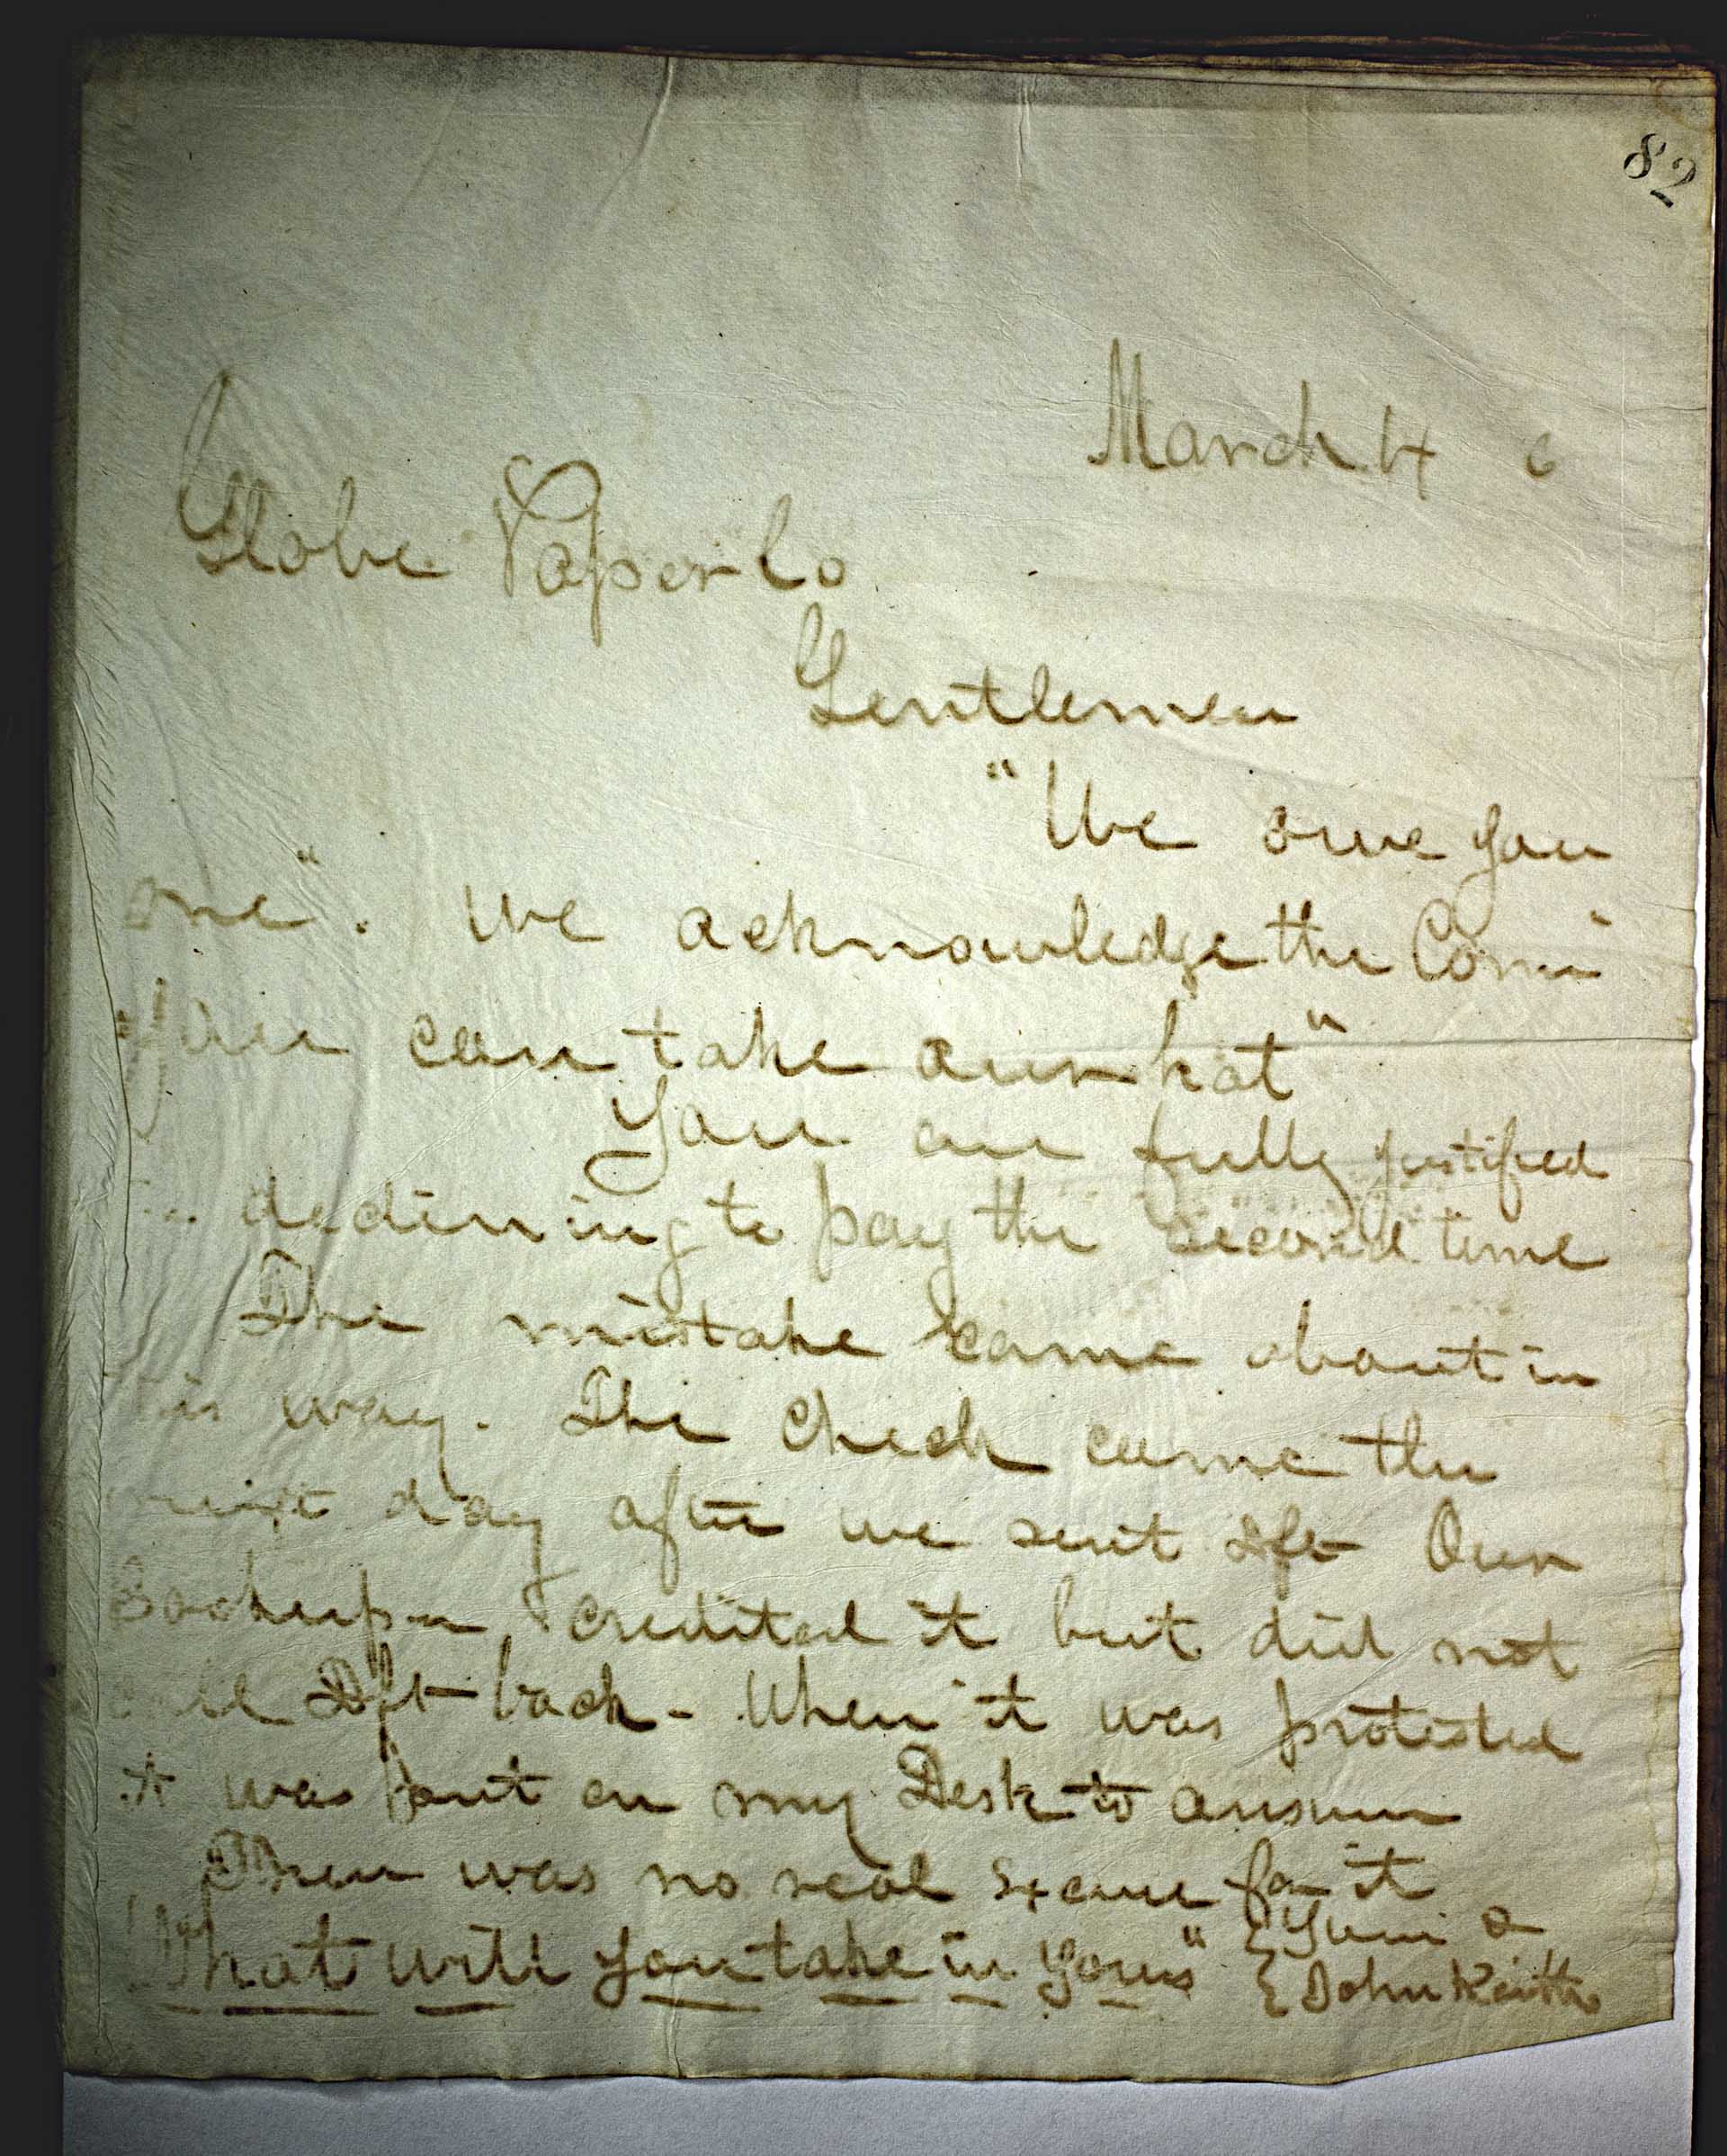 82
March 14 6
Globe Paper Co
Gentlemen
"We owe you
one". We acknowledge the Corn
You can take our hat"
You are fully justified
declining to pay the second time
The mistake came about in
this way. The check came the
next day after we sent dft Our
Bookeeper credited it but did not
Dft back - When it was protested
it was put on my Desk to answer
There was no real excuse for it
What will you take in yours" {Yours
{John Keith